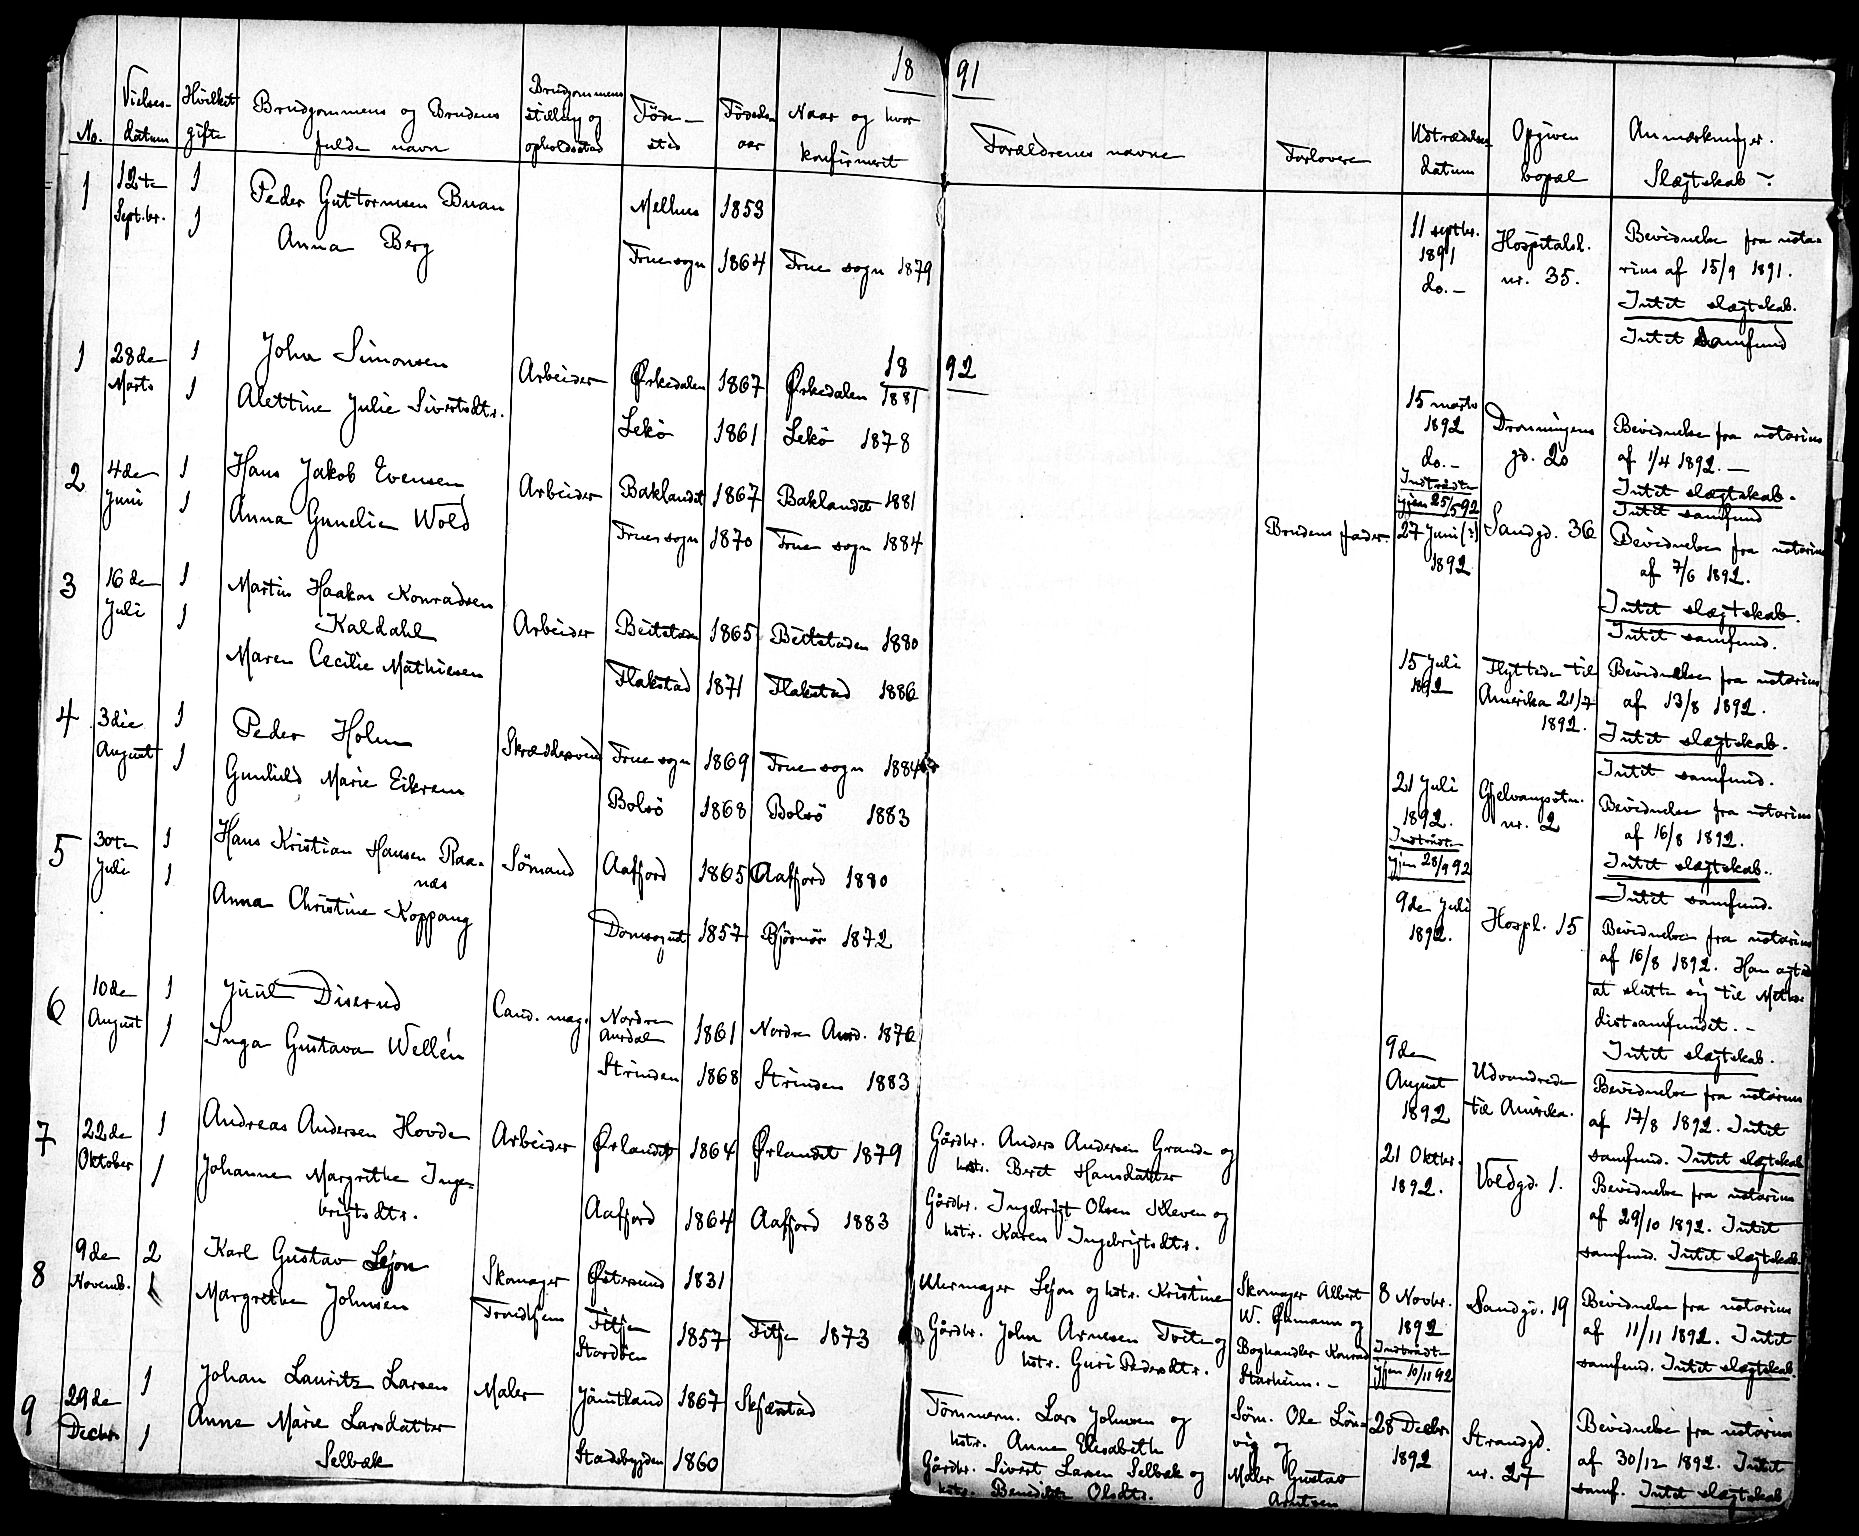 18 91
No. Vielses- datum Hvilket gifte Brudgommens og Brudens fulde navn Brudgommens stilling og opholdssted Føde- sted Fødsels- aar Naar og hvor konfirmert Forældrenes navne Forlovere Udtrædelses datum Opgiven bopæl Anmærkninger. Slægtskab?
1 12te Septbr. 1 Peder Guttormsen Buan Melhus 1853 11 septbr. 1891 Hospitalsl. nr. 35. Bevidnelse fra nota-
rius af 15/9 1891.
1 Anna Berg Frue sogn 1864 Frue sogn 1879 do.- Intet slægtskab.
Intet samfund
18 92
1 28de Marts 1 John Simonsen Arbeider Ørkedalen 1867 Ørkedalen 1881 15 marts 1892 Dronningens gd. 20 Bevidnelse fra notarius
af 1/4 1892.-
1 Alettine Julie Sivertsdtr. Lekø 1861 Lekø 1878 do.- Intet slægtskab.
Intet samfund
2 4de Juni 1 Hans Jakob Evensen Arbeider Baklandet 1867 Baklandet 1881 Indtrådte igjen 25/5 92
1 Anna Gunelie Wold Frues sogn 1870 Frue sogn 1884 Brudens fader. 27 Juni (?) 1892 Sandgd. 36 Bevidnelse fra notarius
af 7/6 1892.
Intet slægtskab.
Intet samfund.
3 16de Juli 1 Martin Haakon Konradsen
Kaldahl Arbeider Beitstaden 1865 Beitstaden 1880
1 Maren Cecilie Mathiesen Flakstad 1871 Flakstad 1886 15 Juli 1892 Flyttede til Amerika 21/7 1892. Bevidnelse fra notarius
af 13/8 1892.
Intet slægtskab.
Intet samfund.
4 3die August 1 Peder Holm Skræddersvend Frue sogn 1869 Frue sogn 1884
1 Gunhild Marie Eikrem Bolsö 1868 Bolsö 1883 21 Juli 1892. Gjelvangsvtn. nr. 2 Bevidnelse fra notarius
af 16/8 1892.
Indtrådte igjen 28/9 92 Intet slægtskab.
Intet samfund.
5 30te Juli 1 Hans Kristian Hansen Raa-
næs Sömand Aafjord 1865 Aafjord 1880
1 Anna Christine Koppang Domsognet 1857 Bjørnør 1872 9de Juli 1892. Hospl. 15 Bevidnelse fra notarius
af 16/8 1892. Han agted
at slutte sig til Metho-
distsamfundet.-
Intet slægtskab.
6 10de August 1 Juul Diserud Cand. mag. Nordre Aurdal 1861 Nordre Aurd. 1876
1 Inga Gustava Wellén Strinden 1868 Strinden 1883 9de August 1892 Udvandrede til Amerika. Bevidnelse fra notarius
af 17/8 1892. Intet
samfund. Intet slægtskab
7 22de Oktober 1 Andreas Andersen Hovde Arbeider Ørlandet 1864 Ørlandet 1879 Gårdbr. Anders Andersen Grande og
hstr. Beret Hansdatter 21 Oktbr. 1892. Voldgd. 1. Bevidnelse fra notarius
1 Johanne Margrethe Inge-
brigtsdtr. Aafjord 1864 Aafjord 1883 Gårdbr. Ingebrigt Olsen Kleven og
hstr. Karen Ingebrigtsdtr. af 29/10 1892. Intet
samfund. Intet slægtskab.
8 9de Novemb. 2 Karl Gustav Lejon Skomager Trondhjem Østersund 1831 Uhrmager Lejon og hstr. Kristine Skomager Albert W. Øhmann og 8 Novbr. 1892 Sandgd. 19 Bevidnelse fra notarius
1 Margrethe Johnsen Fitje Stordöen 1857 Fitje 1873 Gårdbr. John Arnesen Tvite og
hstr. Guri Pedersdtr. Boghandler Konrad Starheim.- Indtrådte igjen 10/11 92 af 11/11 1892. Intet
samfund. Intet slægtskab.
9 29de Decbr. 1 Johan Lauritz Larsen Maler Jämtland 1867 Skjærstad Tömmerm. Lars Johnsen og
hstr. Anne Elisabeth Söm. Ole Lön-
vig og 28 Decbr. 1892 Strandgd. nr. 27 Bevidnelse fra notarius
1 Anne Marie Larsdatter
Selbæk Stadsbygden 1860 Gårdbr. Sivert Larsen Selbæk og
hstr. Benedikte Olsdtr. Maler Gustav
Arntsen af 30/12 1892. Intet
samf. Intet slægtskab